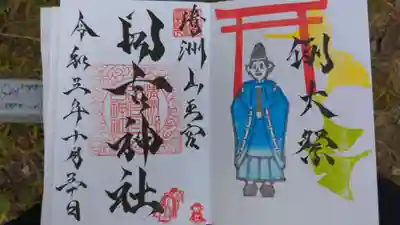 例大祭
洲山王宮
日吉神社
令和三年十月三十日